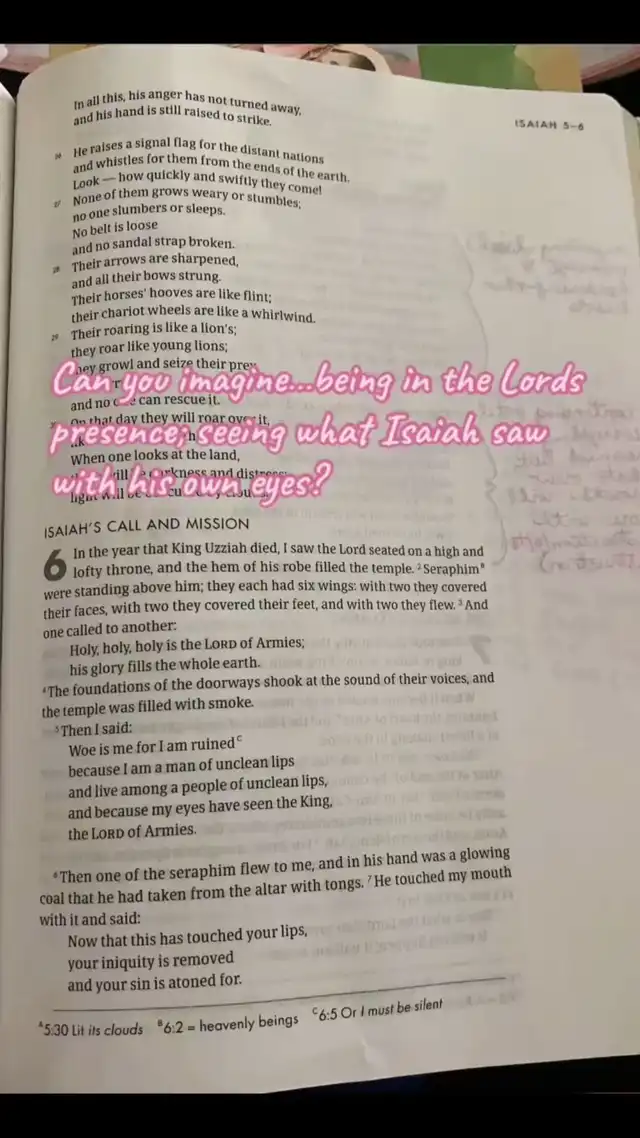 ISAIAH 5–6
In all this, his anger has not turned away,
and his hand is still raised to strike.
26 He raises a signal flag for the distant nations
and whistles for them from the ends of the earth.
Look — how quickly and swiftly they come!
27 None of them grows weary or stumbles;
no one slumbers or sleeps.
No belt is loose
and no sandal strap broken.
28 Their arrows are sharpened,
and all their bows strung.
Their horses' hooves are like flint;
their chariot wheels are like a whirlwind.
29 Their roaring is like a lion's;
they roar like young lions;
they growl and seize their prey
Can you imagine...being in the Lords
and no can rescue it.
On that day they will roar over it,
presence; seeing what Isaiah saw
When one looks at the land,
darkness and distress;
with his own eyes?
light will be
ISAIAH'S CALL AND MISSION
6 In the year that King Uzziah died, I saw the Lord seated on a high and
lofty throne, and the hem of his robe filled the temple. 2 Seraphim B
were standing above him; they each had six wings: with two they covered
their faces, with two they covered their feet, and with two they flew. 3 And
one called to another:
Holy, holy, holy is the LORD of Armies;
his glory fills the whole earth.
4 The foundations of the doorways shook at the sound of their voices, and
the temple was filled with smoke.
5 Then I said:
Woe is me for I am ruined C
because I am a man of unclean lips
and live among a people of unclean lips,
and because my eyes have seen the King,
the LORD of Armies.
6 Then one of the seraphim flew to me, and in his hand was a glowing
coal that he had taken from the altar with tongs. 7 He touched my mouth
with it and said:
Now that this has touched your lips,
your iniquity is removed
and your sin is atoned for.
A 5:30 Lit its clouds B 6:2 = heavenly beings C 6:5 Or I must be silent